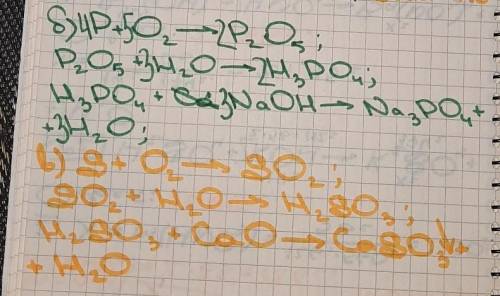 б) 4P+5O₂ → 2P₂O₅;
P₂O₅ + 3H₂O → 2H₃PO₄;
H₃PO₄ + 3NaOH → Na₃PO₄+
+3H₂O;
в) S + O₂ → SO₂;
SO₂ + H₂O → H₂SO₃;
H₂SO₃ + CaO → CaSO₃↓+
+ H₂O